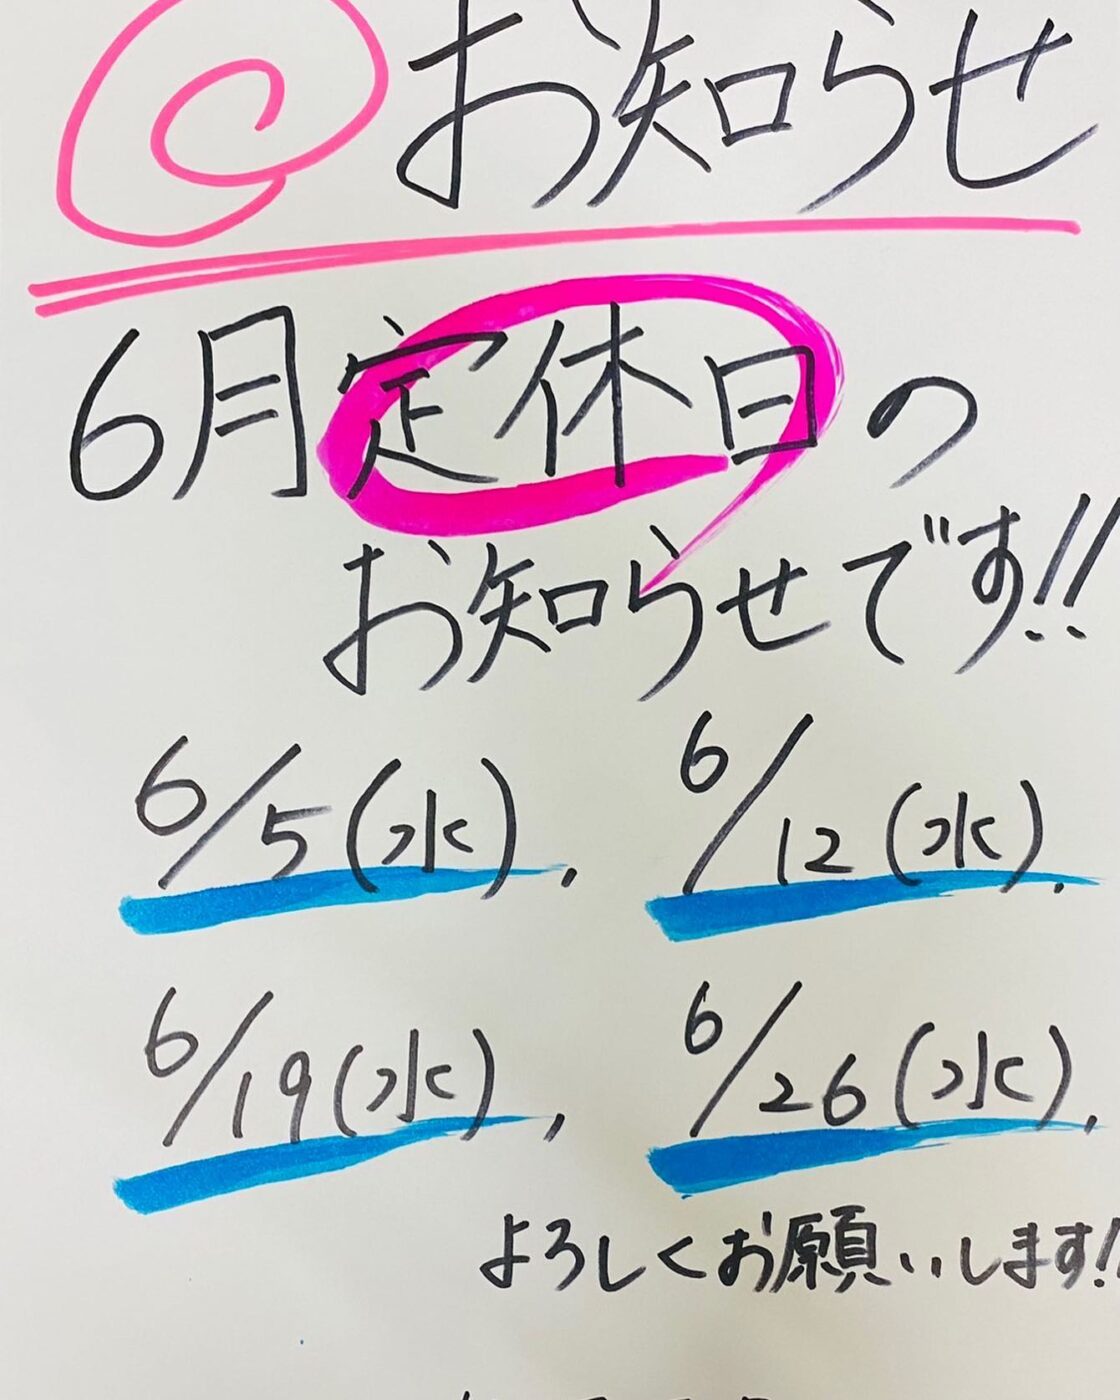 お知らせ
6月定休日の
お知らせです!!
6/5(水), 6/12(水),
6/19(水), 6/26(水),
よろしくお願いします!!